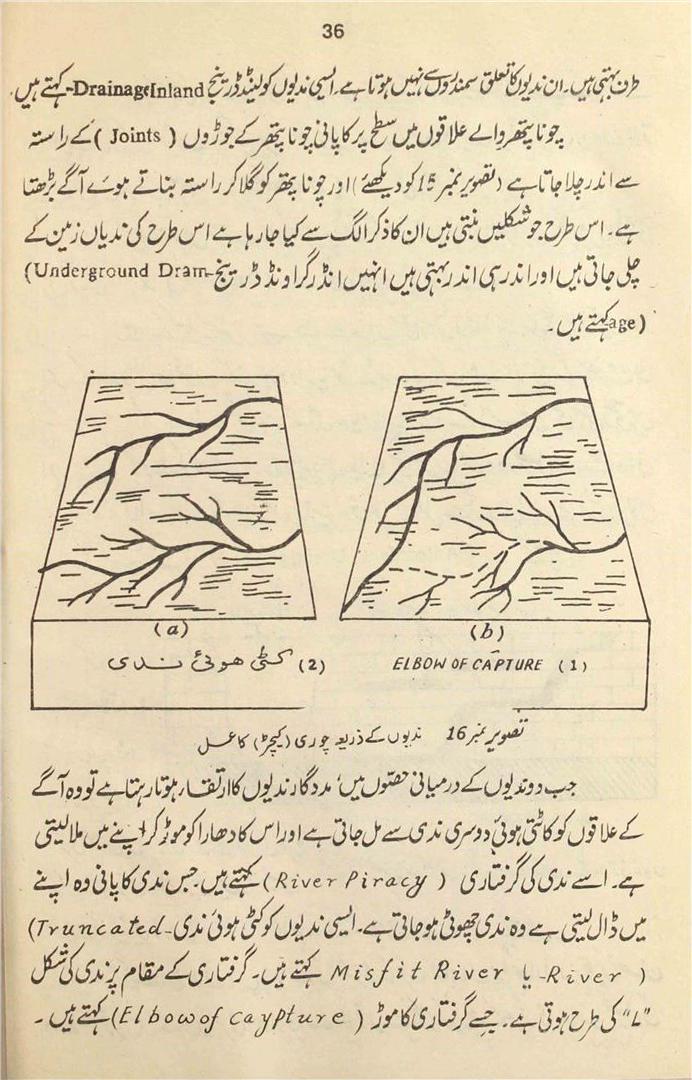 36
طرف بہتی ہیں۔ ان ندیوں کا تعلق سمندروں سے نہیں ہوتا ہے۔ ایسی ندیوں کو لینڈ ڈرینج Drainage Inland کہتے ہیں۔
چونا پتھر والے علاقوں میں سطح پر کا پانی چونا پتھر کے جوڑوں ( Joints ) کے راستہ
سے اندر چلا جاتا ہے (تصویر نمبر 15 کو دیکھئے) اور چونا پتھر کو گلا کر راستہ بناتے ہوئے آگے بڑھتا
ہے۔ اس طرح جو شکلیں بنتی ہیں ان کا ذکر الگ سے کیا جا رہا ہے اس طرح کی ندیاں زمین کے
چلی جاتی ہیں اور اندر ہی اندر بہتی ہیں انہیں انڈر گراونڈ ڈرینج (Underground Dram-
age) کہتے ہیں۔
(a)
(b)
(2) کٹی ھوئی ندی
ELBOW OF CAPTURE (1)
تصویر نمبر 16 ندیوں کے ذریعہ چوری (کیچڑ) کا عمل
جب دو ندیوں کے درمیانی حصّوں میں مددگار ندیوں کا ارتقاء ہوتا رہتا ہے تو وہ آگے
کے علاقوں کو کاٹتی ہوئی دوسری ندی سے مل جاتی ہے اور اس کا دھارا کو موڑ کر اپنے میں ملا لیتی
ہے۔ اسے ندی کی گرفتاری (River Piracy) کہتے ہیں۔ جس ندی کا پانی وہ اپنے
میں ڈال لیتی ہے وہ ندی چھوٹی ہو جاتی ہے۔ ایسی ندیوں کو کٹی ہوئی ندی (Truncated-
River) یا Misfit River کہتے ہیں۔ گرفتاری کے مقام پر ندی کی شکل
"L" کی طرح ہوتی ہے۔ جسے گرفتاری کا موڑ (Elbow of caypture) کہتے ہیں۔